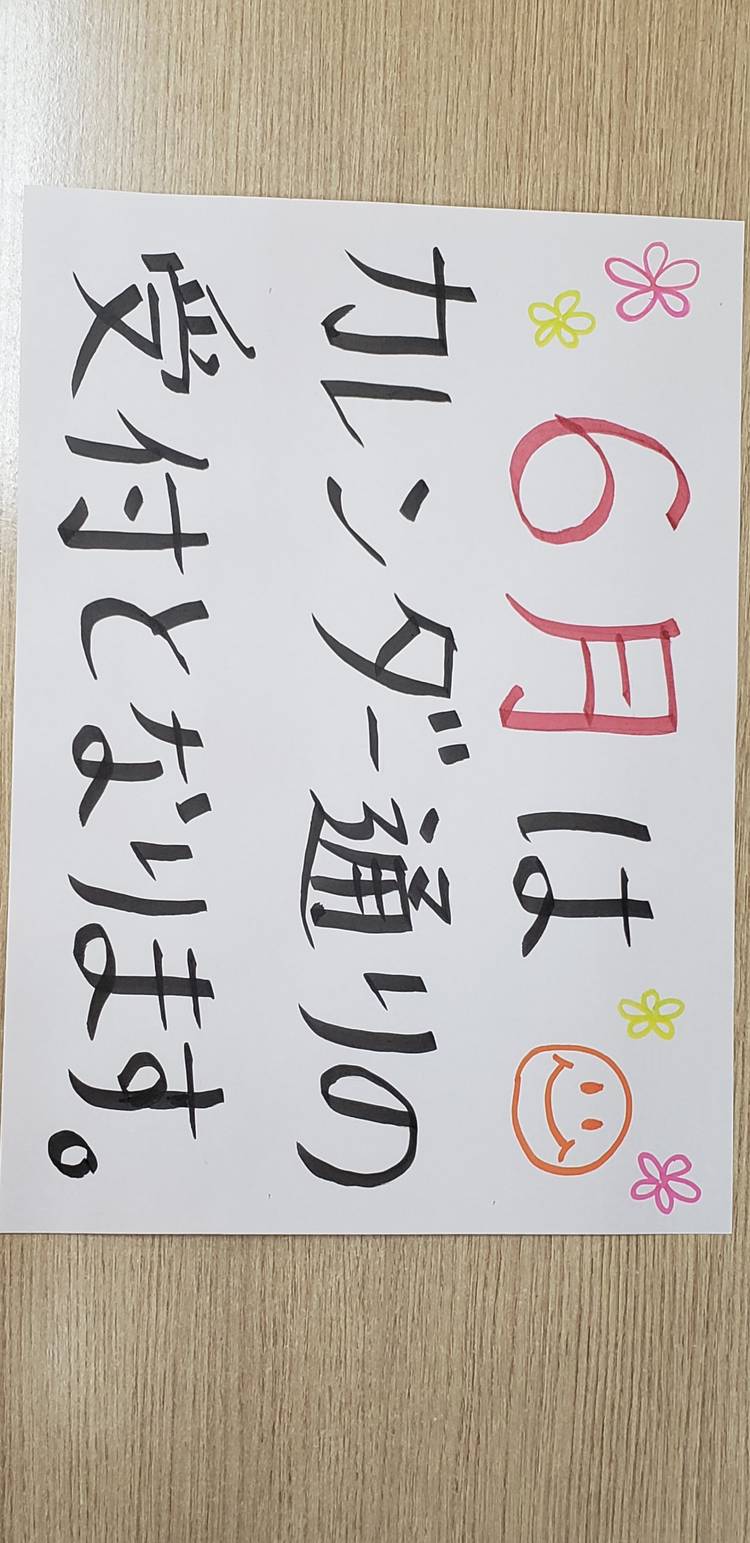 6月は
カレンダー通りの
受付となります。